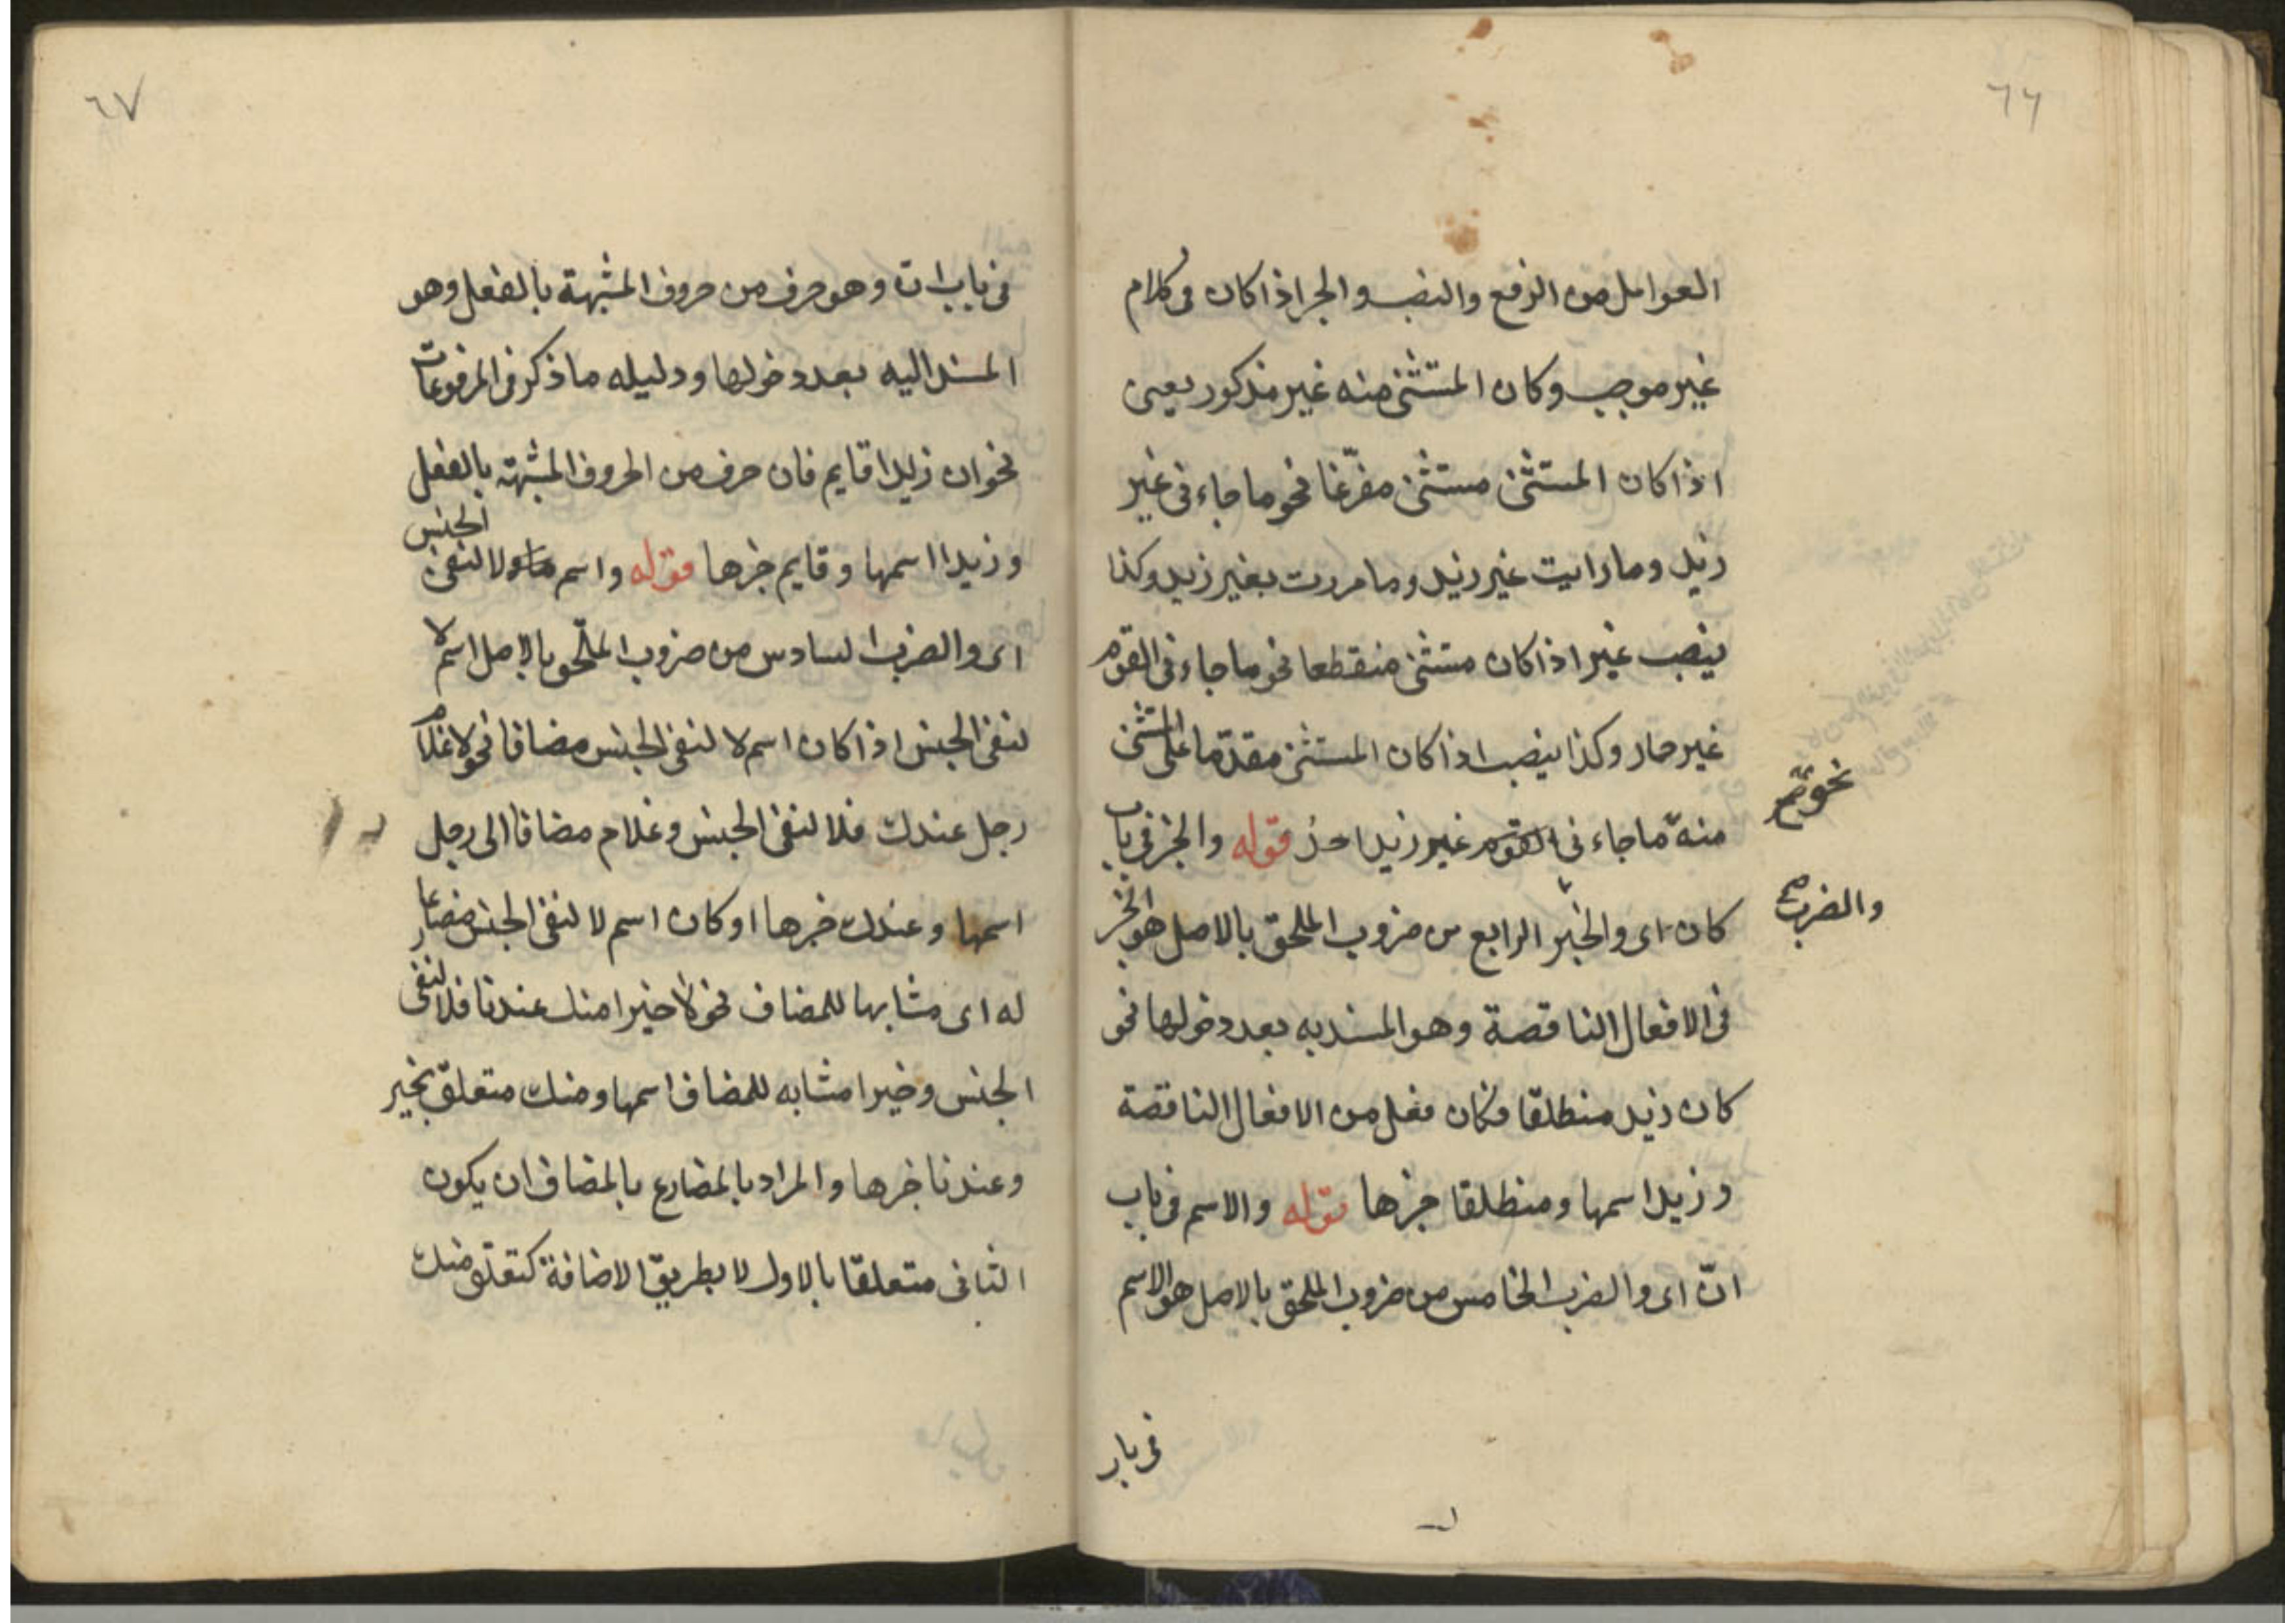 ٦٦
العوامل من الرفع والنصب والجر اذا كان فى كلام
غير موجب وكان المستثنى منه غير مذكور يعنى
اذا كان المستثنى مستثنى مفرّغا نحو ما جاءنى غير
زيد وما رايت غير زيد وما مررت بغير زيد وكذا
ينصب غير اذا كان مستثنى منقطعا نحو ما جاءنى القوم
غير حمار وكذا ينصب اذا كان المستثنى مقدّما على المستثنى
نحو صح
منه ما جاءنى القوم غير زيدا احد قوله والخبر فى باب
والضرب صح
كان اى والخبر الرابع من ضروب الملحق بالاصل هو الخبر
فى الافعال الناقصة وهو المسند به بعد دخولها نحو
كان زيد منطلقا فكان فعل من الافعال الناقصة
وزيد اسمها ومنطلقا خبرها قوله والاسم فى باب
انّ اى والضرب الخامس من ضروب الملحق بالاصل هو الاسم
فى باب
٦٧
فى باب انّ وهو حرف من حروف المشبهة بالفعل وهو
المسند اليه بعد دخولها ودليله ما ذكر فى المرفوعات
نحو ان زيدا قايم فان حرف من الحروف المشبهة بالفعل
وزيدا اسمها وقايم خبرها قوله واسم لا لنفى الجنس
اى والضرب السادس من ضروب الملحق بالاصل اسم لا
لنفى الجنس اذا كان اسم لا لنفى الجنس مضافا نحو لا غلام
رجل عندك فلا لنفى الجنس وغلام مضافا الى رجل
اسمها وعندك خبرها او كان اسم لا لنفى الجنس مضارعا
له اى مشابها للمضاف نحو لا خيرا منك عندنا فلا لنفى
الجنس وخيرا مشابه للمضاف اسمها ومنك متعلق بخير
وعندنا خبرها والمراد بالمضارع بالمضاف ان يكون
الثانى متعلقا بالاول لا بطريق الاضافة كتعلق منك